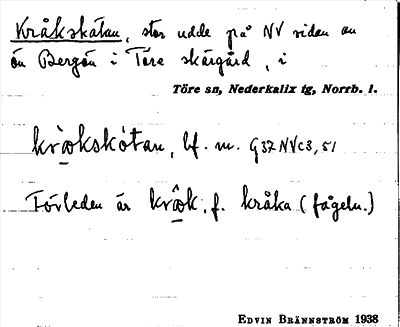 Kråkskätan, stor udde på NV sidan av
ön Bergön i Töre skärgård, i
Töre sn, Nederkalix tg, Norrb. l.
krò̱kskótan, bf. m. G37NVc3,51
Förleden är krô̱k, f. kråka (fågeln.)
EDVIN BRÄNNSTRÖM 1938